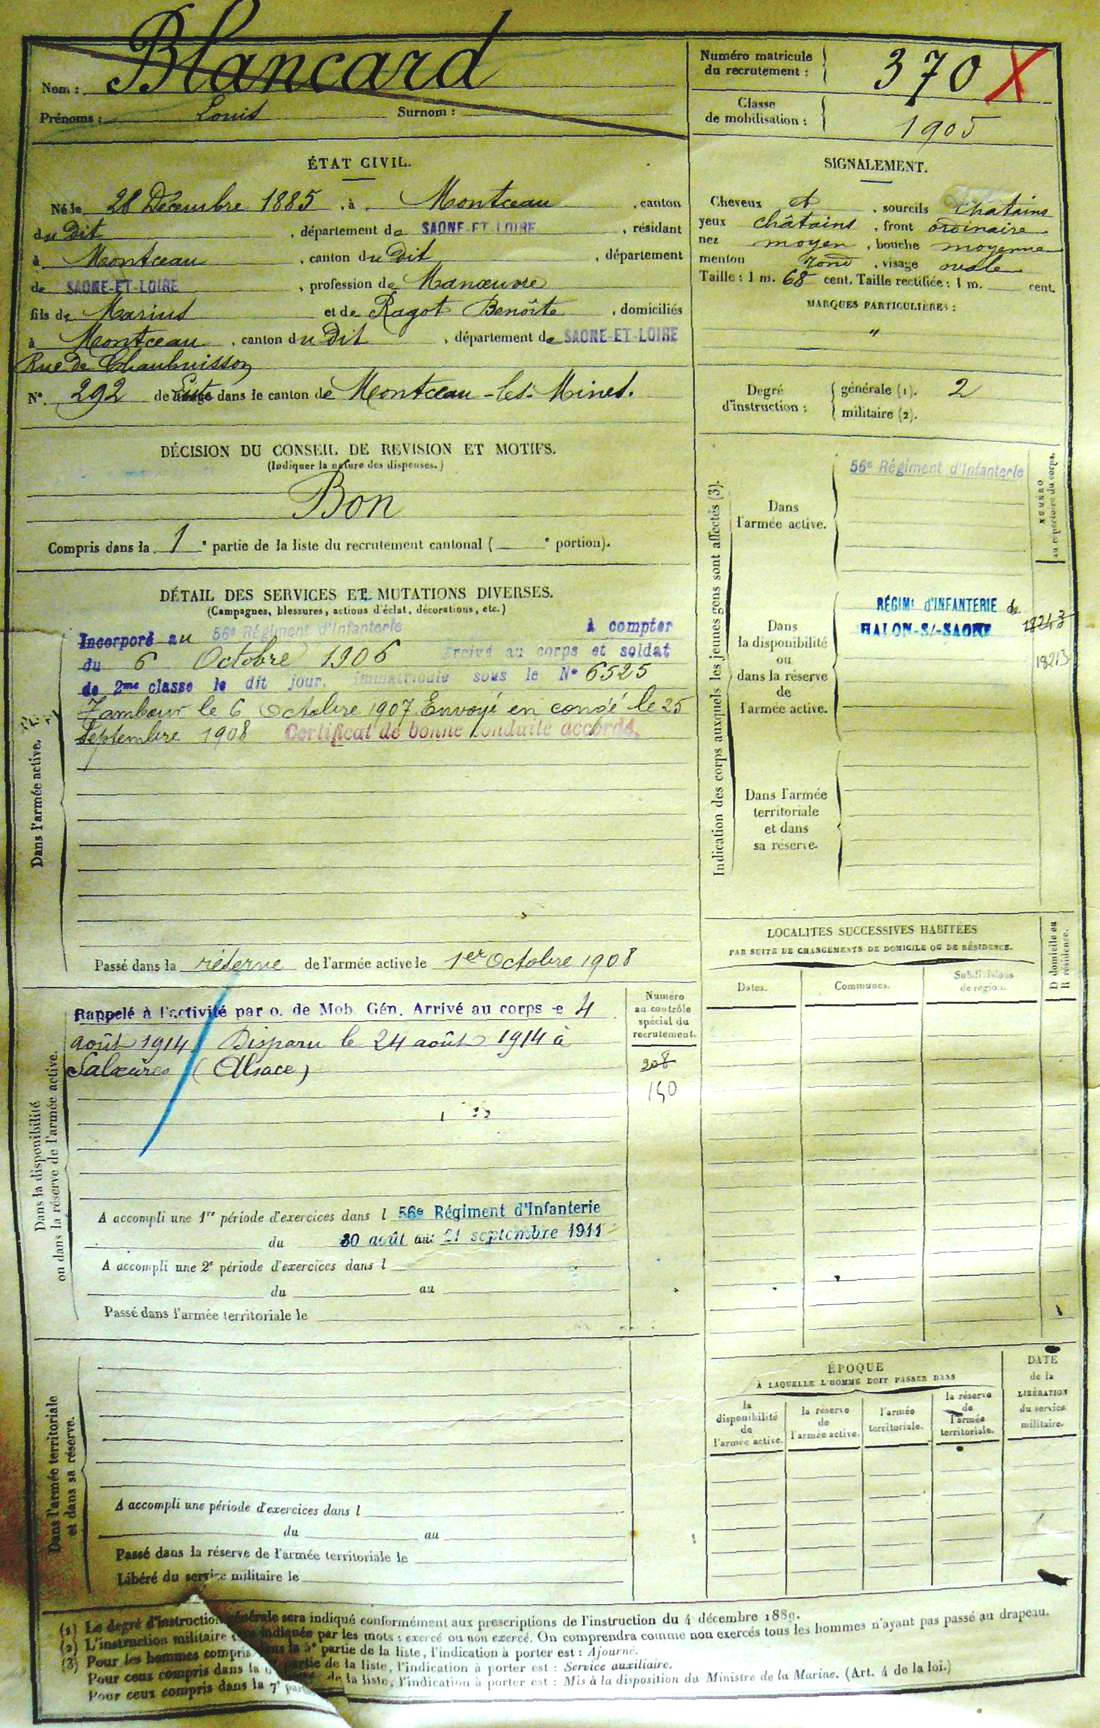 Nom : Blancard
Prénoms : Louis Surnom :
Numéro matricule du recrutement : 370 X
Classe de mobilisation : 1905
ÉTAT CIVIL.
Né le 28 Décembre 1885, à Montceau, canton
du Dit, département de SAONE-ET-LOIRE, résidant
à Montceau, canton du Dit, département
de SAONE-ET-LOIRE, profession de Manœuvre
fils de Marius et de Ragot Benoîte, domiciliés
à Montceau, canton du Dit, département de SAONE-ET-LOIRE
Rue de
N° 292 de Liste dans le canton de Montceau-les-Mines.
SIGNALEMENT.
Cheveux et, sourcils chatains
yeux châtains, front ordinaire
nez moyen, bouche moyenne
menton rond, visage ovale
Taille : 1 m. 68 cent. Taille rectifiée : 1 m. cent.
MARQUES PARTICULIÈRES :
"
Degré d'instruction : générale (1). 2
militaire (2).
DÉCISION DU CONSEIL DE REVISION ET MOTIFS.
(Indiquer la nature des dispenses.)
Bon
Compris dans la 1e partie de la liste du recrutement cantonal ( e portion).
DÉTAIL DES SERVICES ET MUTATIONS DIVERSES.
(Campagnes, blessures, actions d'éclat, décorations, etc.)
Dans l'armée active.
Incorporé au 56e Régiment d'Infanterie à compter
du 6 Octobre 1906 Arrivé au corps et soldat
de 2me classe le dit jour, immatriculé sous le N° 6525
Tambour le 6 Octobre 1907 Envoyé en congé le 25
Septembre 1908 Certificat de bonne conduite accordé.
Passé dans la réserve de l'armée active le 1er Octobre 1908
Indication des corps auxquels les jeunes gens sont affectés (3).
NUMÉRO au répertoire du corps.
Dans l'armée active.
56e Régiment d'Infanterie
Dans la disponibilité ou dans la réserve de l'armée active.
RÉGIMt d'INFANTERIE de
HALON-S/-SAONE
Dans l'armée territoriale et dans sa réserve.
LOCALITÉS SUCCESSIVES HABITÉES
PAR SUITE DE CHANGEMENTS DE DOMICILE OU DE RÉSIDENCE.
Dates. Communes. Subdivisions de région. D domicile ou R résidence.
Dans la disponibilité ou dans la réserve de l'armée active.
Numéro au contrôle spécial du recrutement.
208
150
Rappelé à l'activité par o. de Mob. Gén. Arrivé au corps e 4
août 1914 Disparu le 24 août 1914 à
(Alsace)
A accompli une 1re période d'exercices dans l 56e Régiment d'Infanterie
du 30 août au 21 septembre 1911
A accompli une 2e période d'exercices dans l
du au
Passé dans l'armée territoriale le
Dans l'armée territoriale et dans sa réserve.
A accompli une période d'exercices dans l
du au
Passé dans la réserve de l'armée territoriale le
Libéré du service militaire le
ÉPOQUE
A LAQUELLE L'HOMME DOIT PASSER DANS
la disponibilité de l'armée active.
la réserve de l'armée active.
l'armée territoriale.
la réserve de l'armée territoriale.
DATE de la LIBÉRATION du service militaire.
(1) Le degré d'instruction générale sera indiqué conformément aux prescriptions de l'instruction du 4 décembre 1889.
(2) L'instruction militaire indiquée par les mots : exercé ou non exercé. On comprendra comme non exercés tous les hommes n'ayant pas passé au drapeau.
(3) Pour les hommes compris dans la 5e partie de la liste, l'indication à porter est : Ajourné.
Pour ceux compris dans la partie de la liste, l'indication à porter est : Service auxiliaire.
Pour ceux compris dans la 7e de la liste, l'indication à porter est : Mis à la disposition du Ministre de la Marine. (Art. 4 de la loi.)